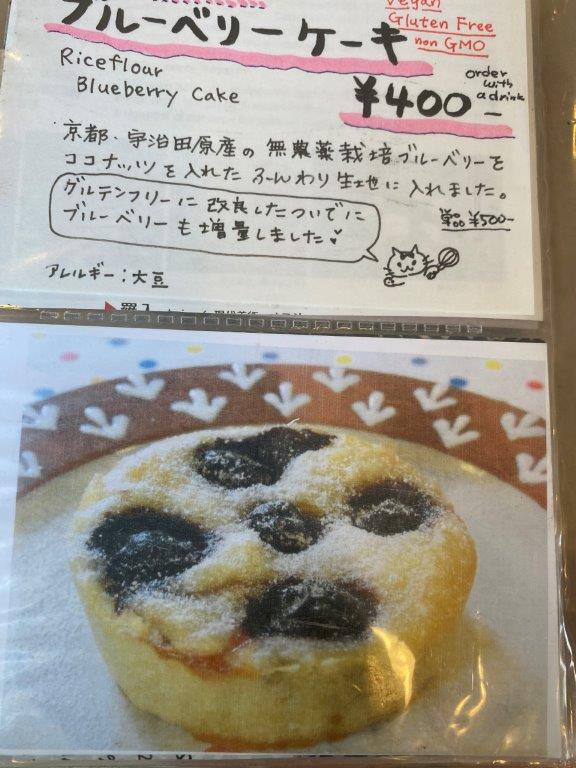 Vegan
Gluten Free
non GMO
ブルーベリーケーキ
Riceflour
Blueberry Cake
order
with
a drink
¥400-
京都・宇治田原産の無農薬栽培ブルーベリーを
ココナッツを入れたふーんわり生地に入れました。
グルテンフリーに改良したついでに
ブルーベリーも増量しました
単品¥500-
アレルギー：大豆